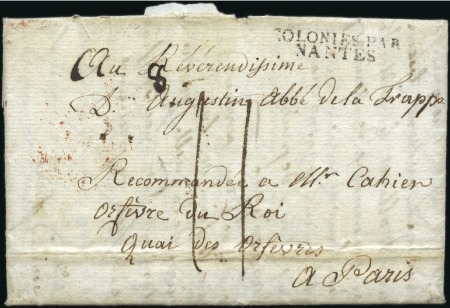 COLONIES PAR
NANTES
Au Révérendissime
8
D. Augustin Abbé de la Trappe
11
Recommandée a Mr. Cahier
orfèvre du Roi
Quai des orfèvres
a Paris